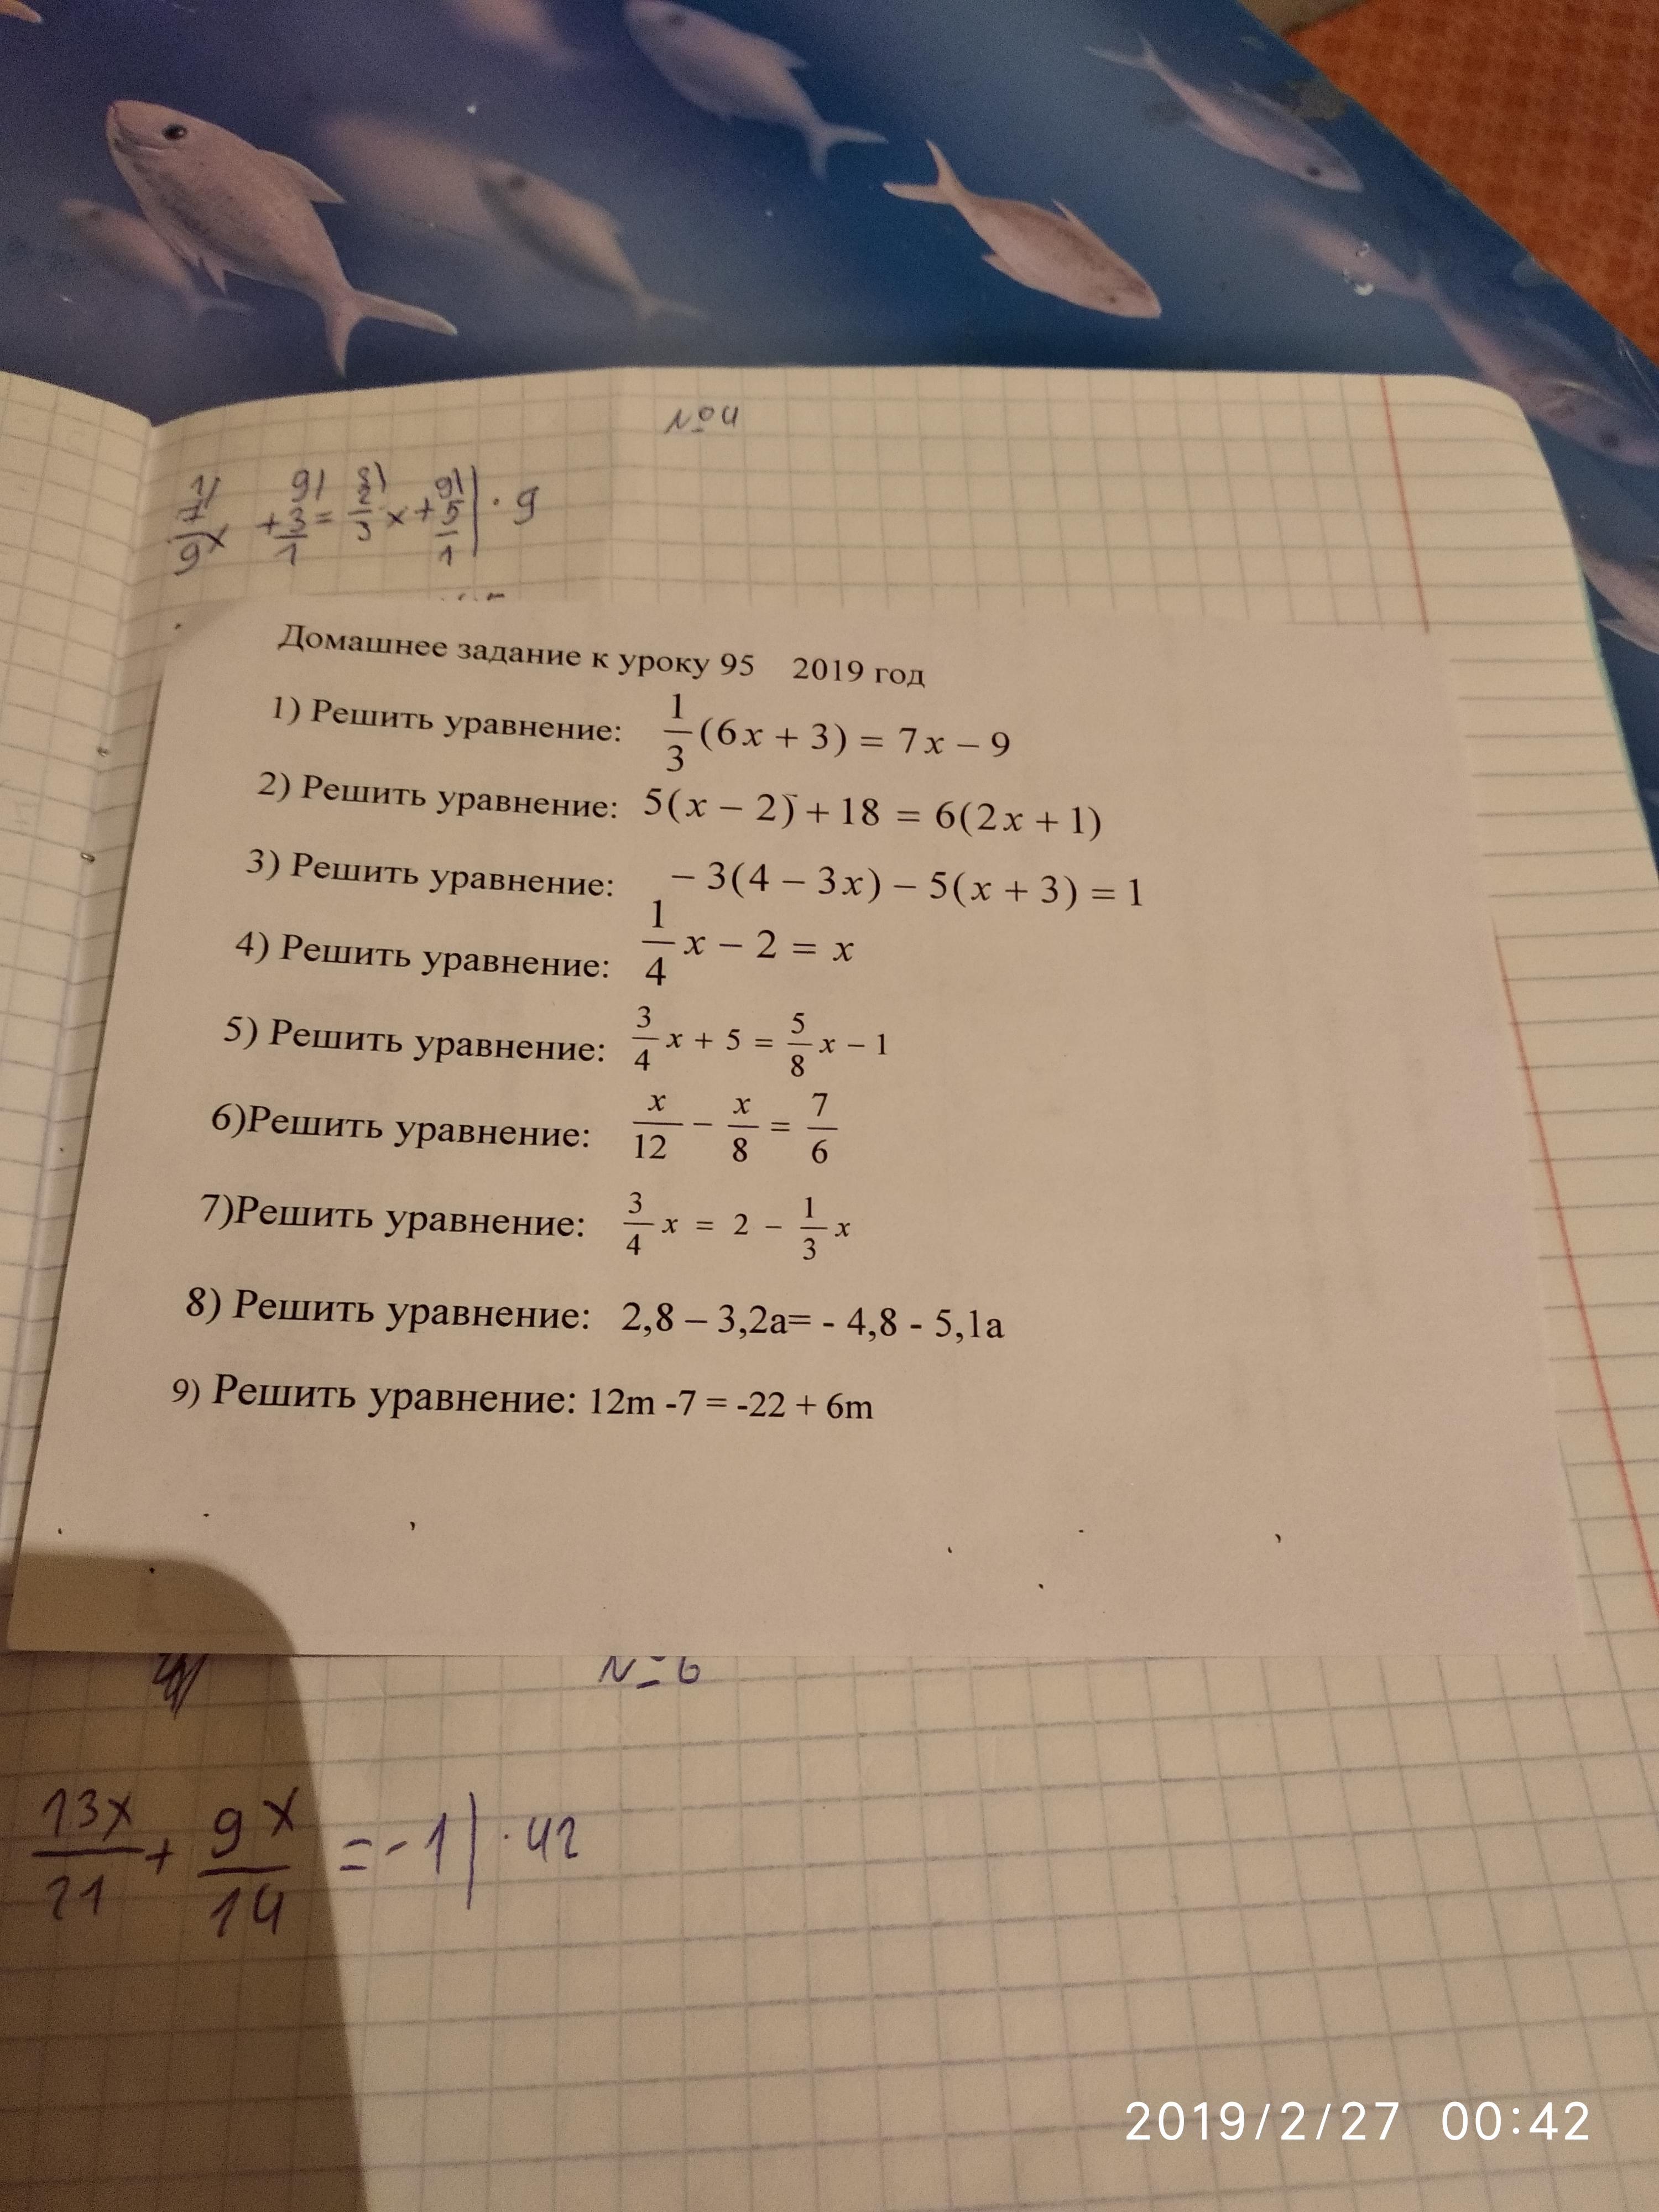 №4
7/9 x + 3/1 = 2/3 x + 5/1 | · 9
Домашнее задание к уроку 95 2019 год
1) Решить уравнение: 1/3 (6x + 3) = 7x – 9
2) Решить уравнение: 5(x – 2) + 18 = 6(2x + 1)
3) Решить уравнение: – 3(4 – 3x) – 5(x + 3) = 1
4) Решить уравнение: 1/4 x – 2 = x
5) Решить уравнение: 3/4 x + 5 = 5/8 x – 1
6)Решить уравнение: x/12 – x/8 = 7/6
7)Решить уравнение: 3/4 x = 2 – 1/3 x
8) Решить уравнение: 2,8 – 3,2a= - 4,8 - 5,1a
9) Решить уравнение: 12m -7 = -22 + 6m
№6
13x/21 + 9x/14 = -1 | · 42
2019/2/27 00:42